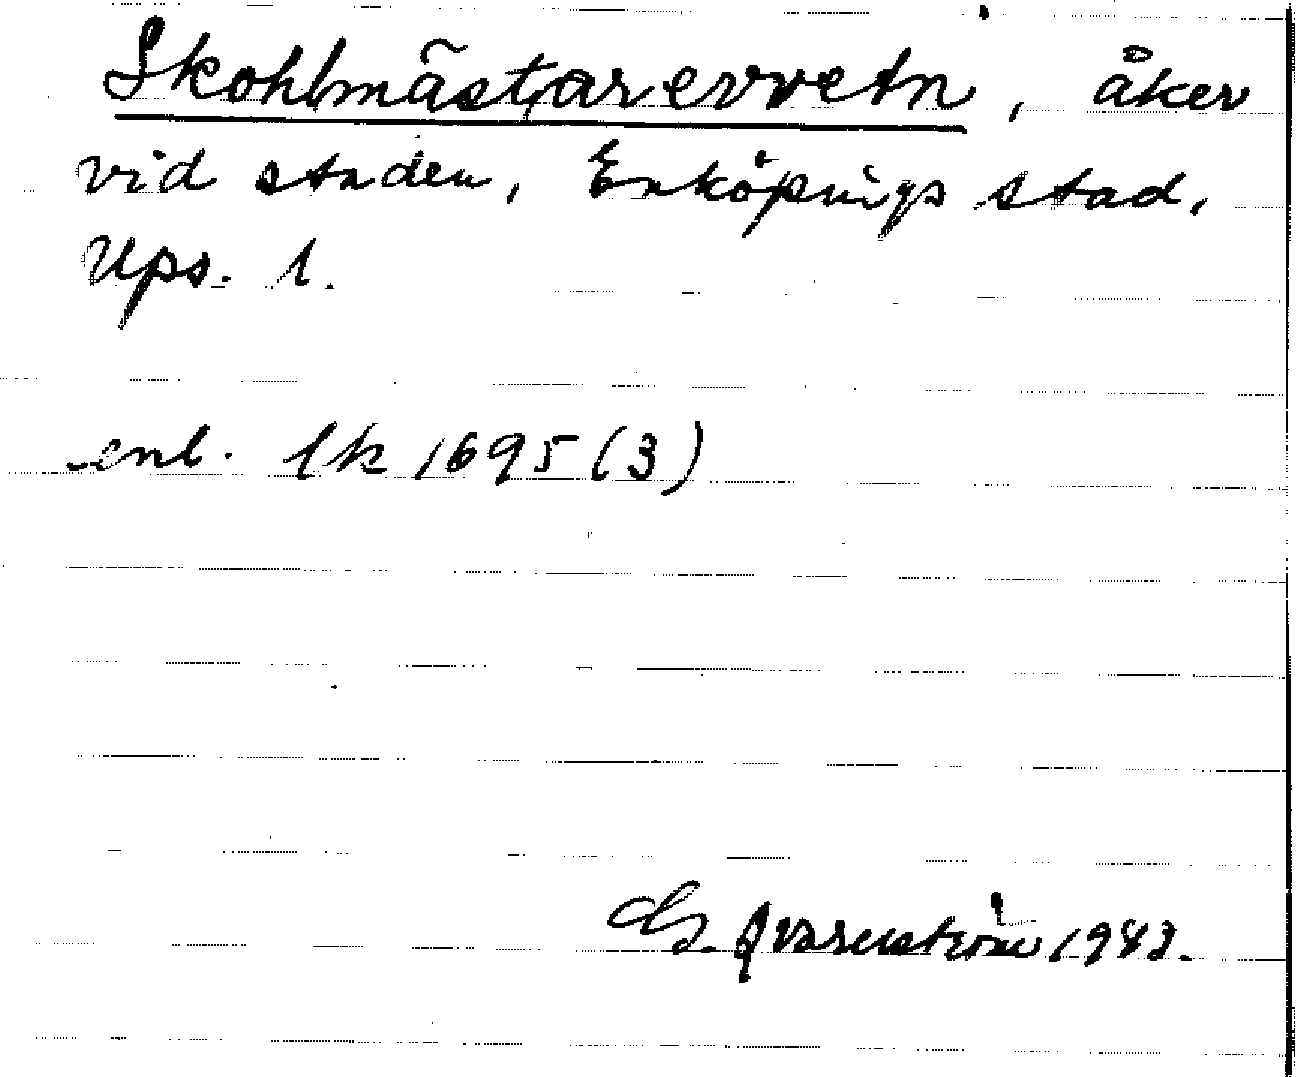 Skohlmästarervretn, åker
vid staden, Enköpings stad,
Ups. l.
enl. lk 1695 (3)
G. Qvarnström 1943.